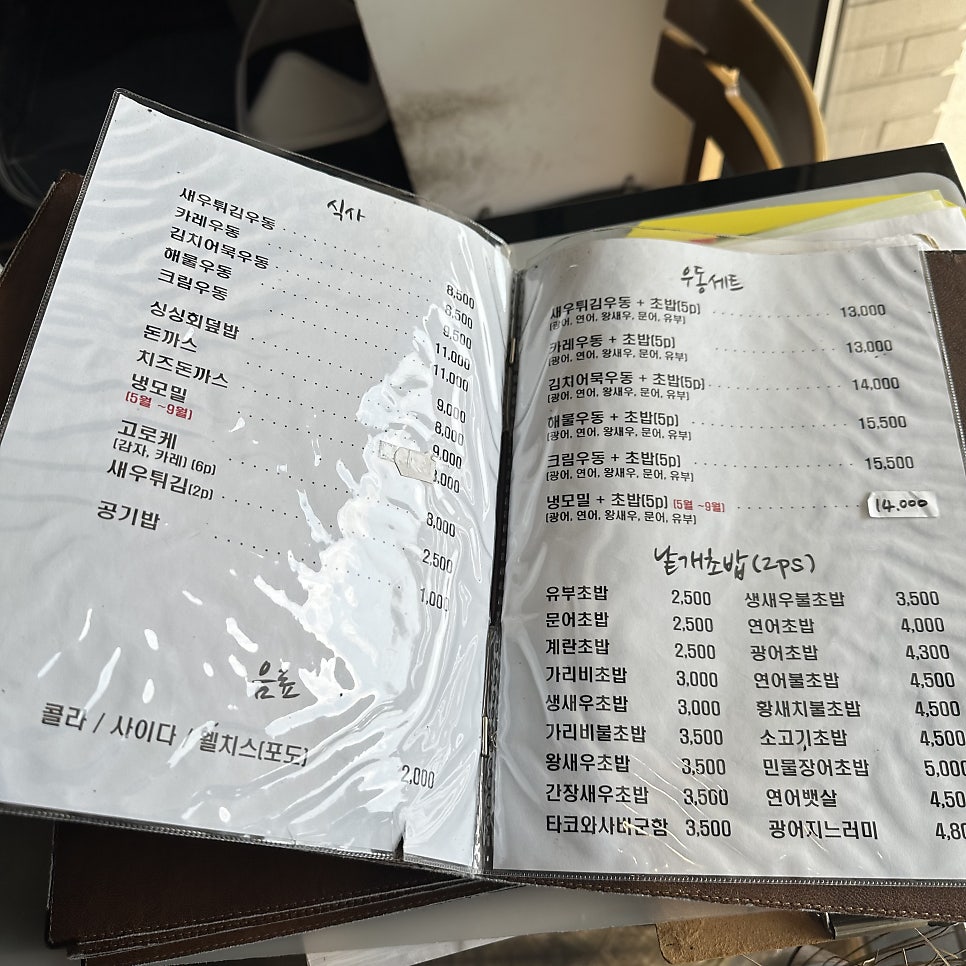 식사
새우튀김우동 8,500
카레우동 8,500
김치어묵우동 9,500
해물우동 11,000
크림우동 11,000
싱싱회덮밥 9,000
돈까스 8,000
치즈돈까스 9,000
냉모밀
(5월 ~9월)
고로케 8,000
(감자, 카레) (6p)
새우튀김(2p) 2,500
공기밥 1,000
음료
콜라 / 사이다 / 웰치스(포도) 2,000
우동세트
새우튀김우동 + 초밥(5p) 13,000
(광어, 연어, 왕새우, 문어, 유부)
카레우동 + 초밥(5p) 13,000
(광어, 연어, 왕새우, 문어, 유부)
김치어묵우동 + 초밥(5p) 14,000
(광어, 연어, 왕새우, 문어, 유부)
해물우동 + 초밥(5p) 15,500
(광어, 연어, 왕새우, 문어, 유부)
크림우동 + 초밥(5p) 15,500
(광어, 연어, 왕새우, 문어, 유부)
냉모밀 + 초밥(5p) (5월 ~9월) 14.000
(광어, 연어, 왕새우, 문어, 유부)
낱개초밥(2ps)
유부초밥 2,500 생새우불초밥 3,500
문어초밥 2,500 연어초밥 4,000
계란초밥 2,500 광어초밥 4,300
가리비초밥 3,000 연어불초밥 4,500
생새우초밥 3,000 황새치불초밥 4,500
가리비불초밥 3,500 소고기초밥 4,500
왕새우초밥 3,500 민물장어초밥 5,000
간장새우초밥 3,500 연어뱃살 4,50
타코와사비군함 3,500 광어지느러미 4,80